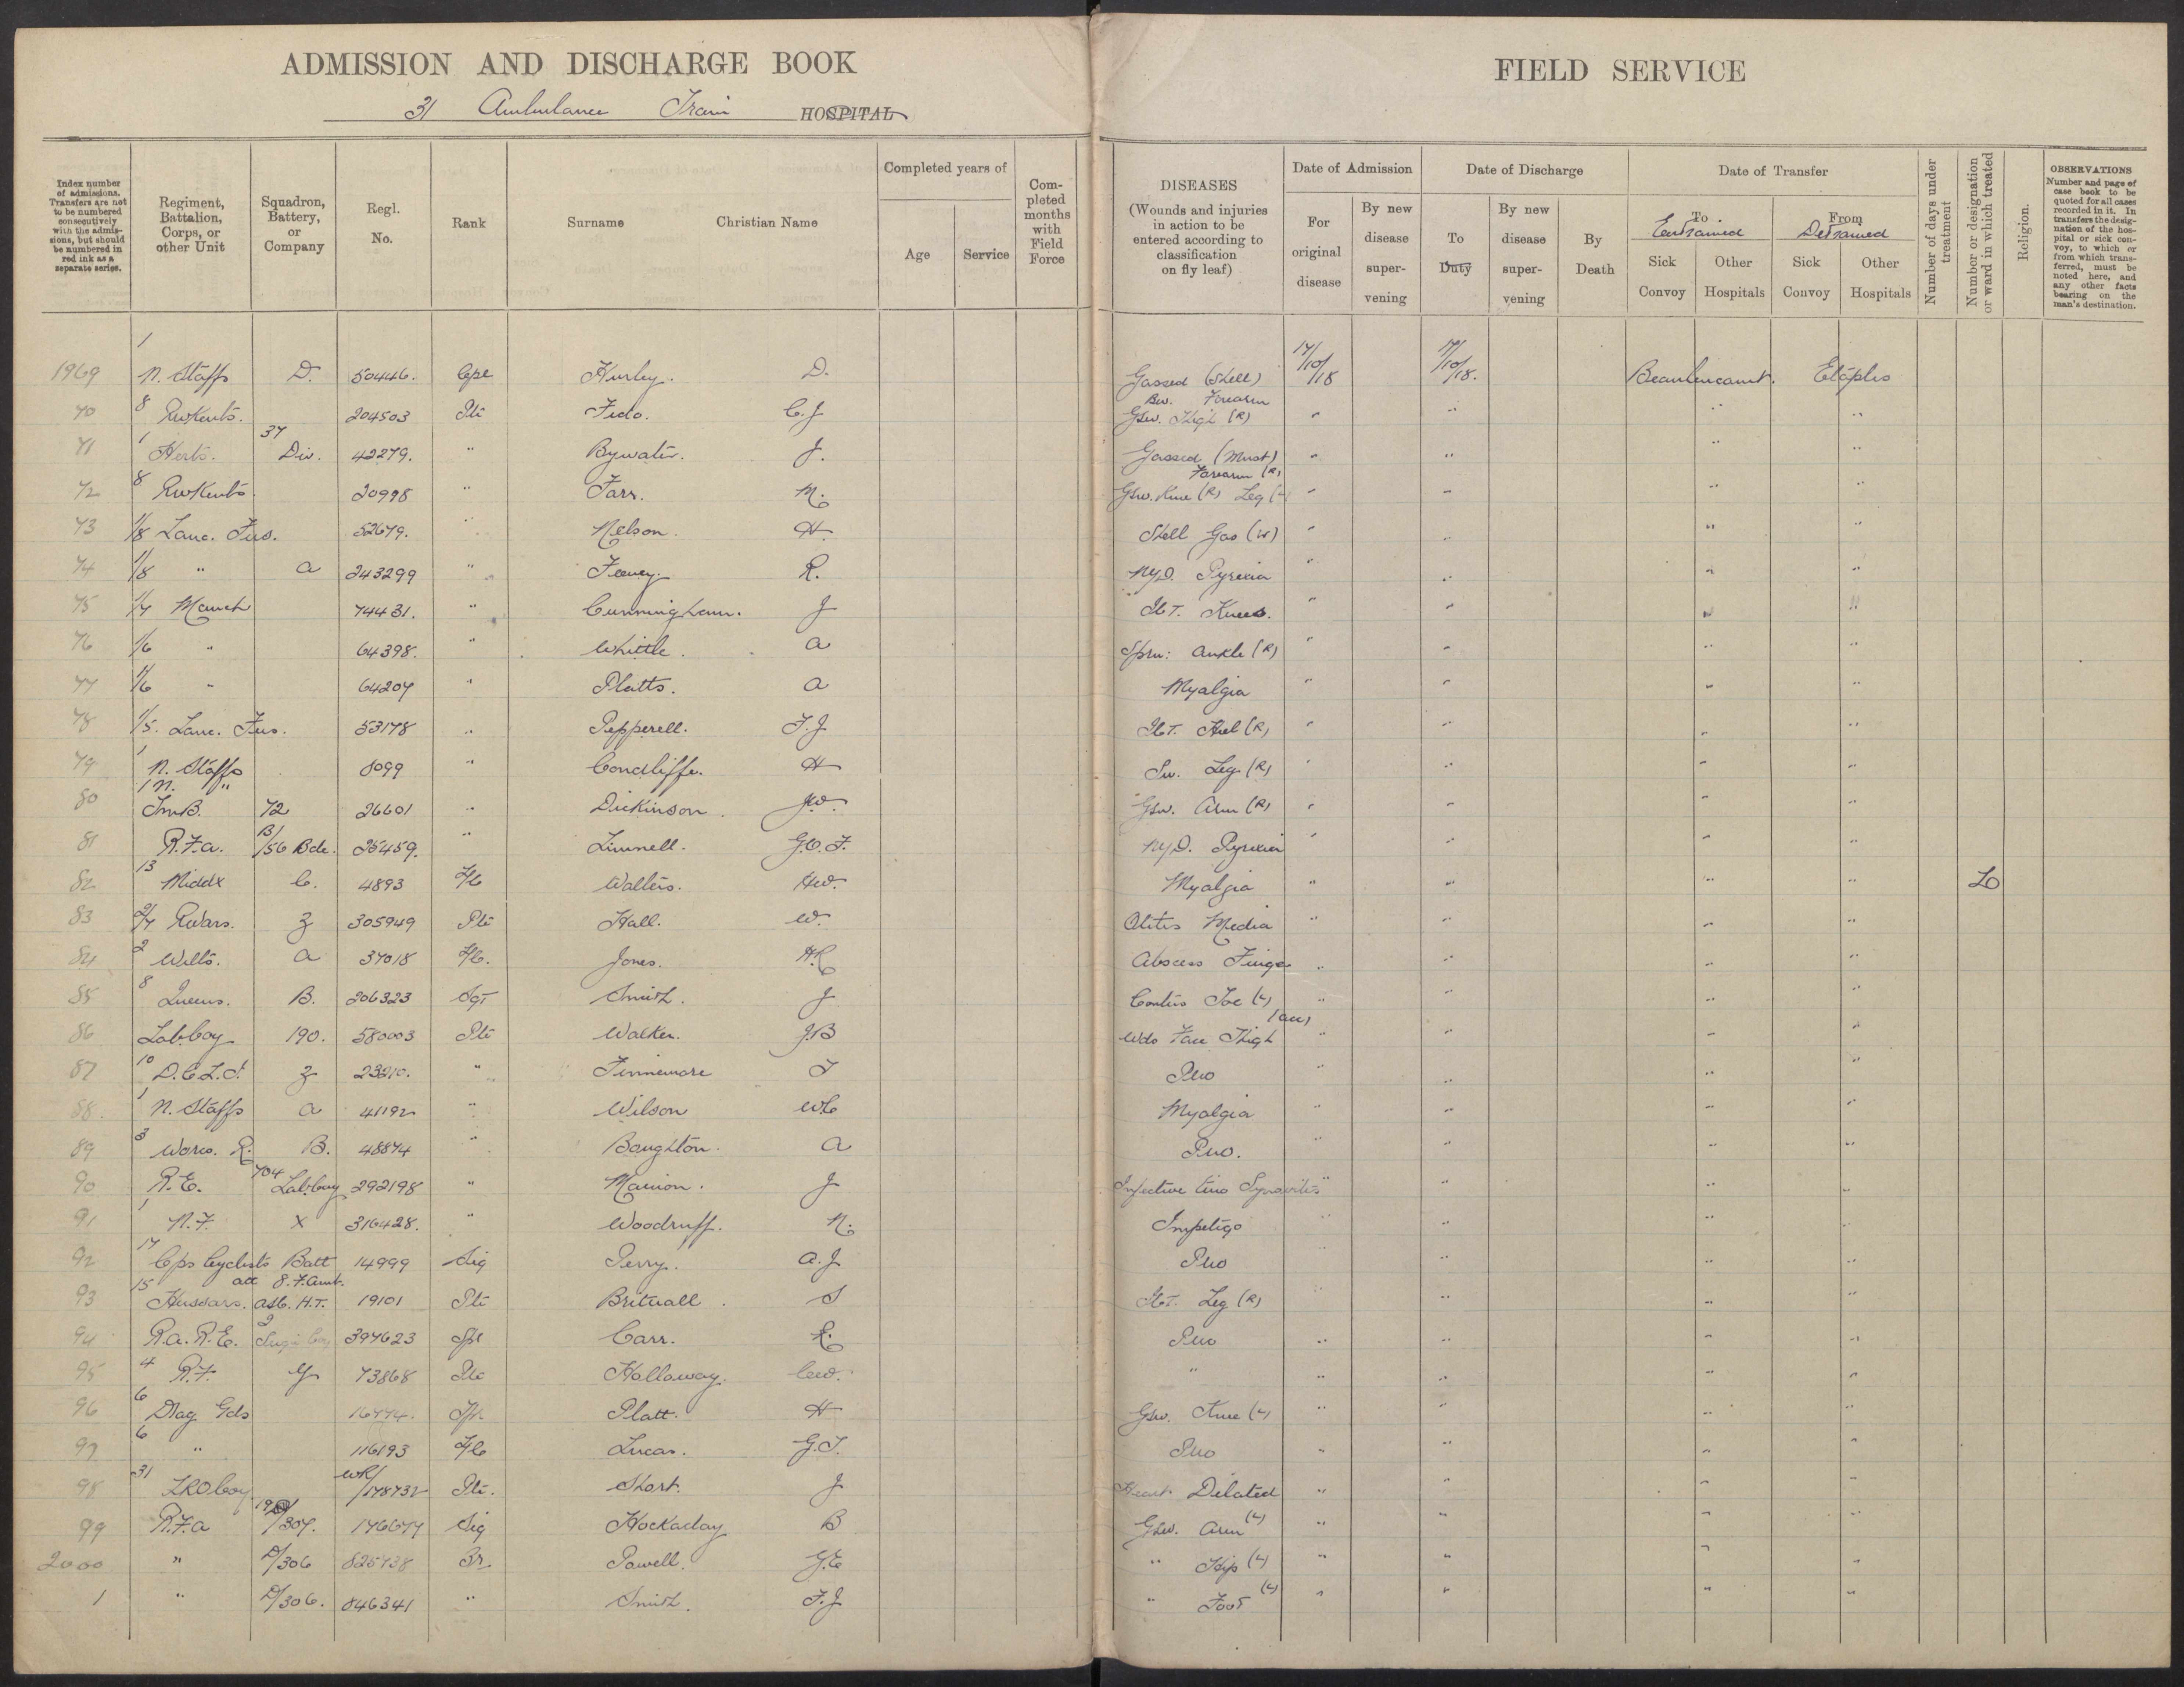 ADMISSION AND DISCHARGE BOOK
31 Ambulance Train HOSPITAL
FIELD SERVICE
Index number of admissions. Transfers are not to be numbered consecutively with the admissions, but should be numbered in red ink as a separate series.
Regiment, Battalion, Corps, or other Unit
Squadron, Battery, or Company
Regl. No.
Rank
Surname Christian Name
Completed years of
Age Service
Completed months with Field Force
DISEASES (Wounds and injuries in action to be entered according to classification on fly leaf)
Date of Admission
For original disease
By new disease supervening
Date of Discharge
To Duty
By new disease supervening
By Death
Date of Transfer
To Entrained
Sick Convoy Other Hospitals
From Detrained
Sick Convoy Other Hospitals
Number of days under treatment
Number or designation or ward in which treated
Religion.
OBSERVATIONS Number and page of case book to be quoted for all cases recorded in it. In transfers the designation of the hospital or sick convoy, to which or from which transferred, must be noted here, and any other facts bearing on the man's destination.
1969 1 N. Staffs D. 50446. Cpl Hurley. D. Gassed (Shell) 17/10/18 17/10/18. Beaulencourt. Etaples
70 8 RWKents. 204503 Pte Fido. C.J Gsw. Thigh (R) Forearm " " " "
71 1 Herts. 37 Div. 42279. " Bywater. J. Gassed (Must) " " " "
72 8 RWKents. 20998 " Farr. M. Gsw. Knee (R) Leg (L) Forearm (R) " " " "
73 1/8 Lanc. Fus. 52679. " Nelson. H. Shell Gas (W) " " " "
74 1/8 " A 243299 " Feeney. R. NYD. Pyrexia " " " "
75 1/7 Manch 74431. " Cunningham. J ICT. Knees. " " " "
76 1/6 " 64398. " Whittle. A Sprn: Ankle (R) " " " "
77 1/6 " 64207 " Platts. A Myalgia " " " "
78 1/5. Lanc. Fus. 53178 " Pepperell. T.J ICT. Heel (R) " " " "
79 1 N. Staffs 8099 " Condliffe. H Sw. Leg (R) " " " "
80 1 N. " TMB. 72 26601 " Dickinson. J.W. Gsw. Arm (R) " " " "
81 R.F.A. B/56 Bde. 25459. " Linnell. G.O.F. NYD. Pyrexia " " " "
82 13 Middx C. 4893 L/C Walters. HW. Myalgia " " " " LO
83 2/7 RWars. Z 305949 Pte Hall. W. Otitis Media " " " "
84 2 Wilts. A 37018 L/C. Jones. H.R Abscess Finger " " " "
85 8 Queens. B. 206323 Sgt Smith. J Contus Toe (L) " " " "
86 Lab. Coy 190. 580003 Pte Walker. J.B Wds Face Thigh (acc) " " " "
87 10 D.C.L.I. Z 23210. " Finnemore T Puo " " " "
88. 1 N. Staffs A 41192 " Wilson WC Myalgia " " " "
89 3 Worcs. R. B. 48874 " Boughton. A Puo. " " " "
90 R.E. 704 Lab. Coy 292198 " Marion. J Infective Teno Synovitis " " " "
91 1 N.F. X 316428. " Woodruff. N. Impetigo " " " "
92 17 Cps Cyclists Batt 14999 Sig Perry. A.J Puo " " " "
93 15 Hussars. att 8. F. Amb. ASC. H.T. 19101 Pte Britnall. S ICT. Leg (R) " " " "
94 R.A.R.E. 2 397623 Spr Carr. R. Puo " " " "
95 4 R.F. Y 73868 Pte Holloway. CW. " " " " "
96 6 Drag Gds 16774. Platt. H Gsw. Knee (L) " " " "
97 6 " 116193 L/C Lucas. G.T. Puo " " " "
98 31 LROCoy WR/178732 Pte. Short. J Heart Dilated " " " "
99 R.F.A /307. 176677 Sig Hockaday B Gsw. Arm (L) " " " "
2000 " D/306 825738 Br. Powell. G.E " Hip (L) " " " "
1 " D/306. 846341 " Smith. F.J " Foot (L) " " " "